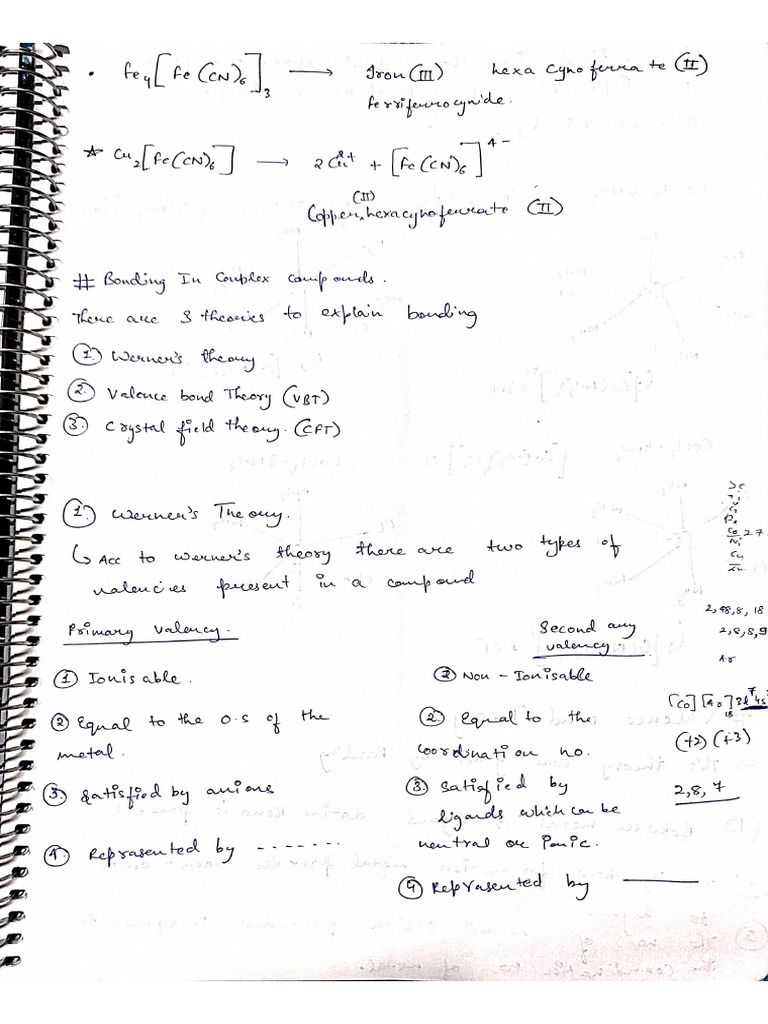 • Fe4[Fe(CN)6]3 ⟶ Iron(III) hexa cynoferrate (II)
ferriferrocynide.
☆ Cu2[Fe(CN)6] ⟶ 2Cu2+ + [Fe(CN)6]4-
(II)
Copper,hexacynoferrate (II)
# Bonding In Complex compounds.
There are 3 theories to explain bonding
① Werner's theory
② Valence bond Theory (VBT)
③ Crystal field theory. (CFT)
① Werner's Theory.
↳ Acc to werner's theory there are two types of
valencies present in a compound
Primary valency.
① Ionisable.
② Equal to the O.S of the
metal.
③ Satisfied by anions
④ Reprasented by - - - - - - -
Second ary
valency.
② Non - Ionisable
② Equal to the
coordination no.
③ Satisfied by
ligands which can be
neutral or Ionic.
④ Reprasented by ———
Sc
Co 27
Ni
Cu
Zn
2,8,8,9
Ar
(+2) (+3)
2,8,7